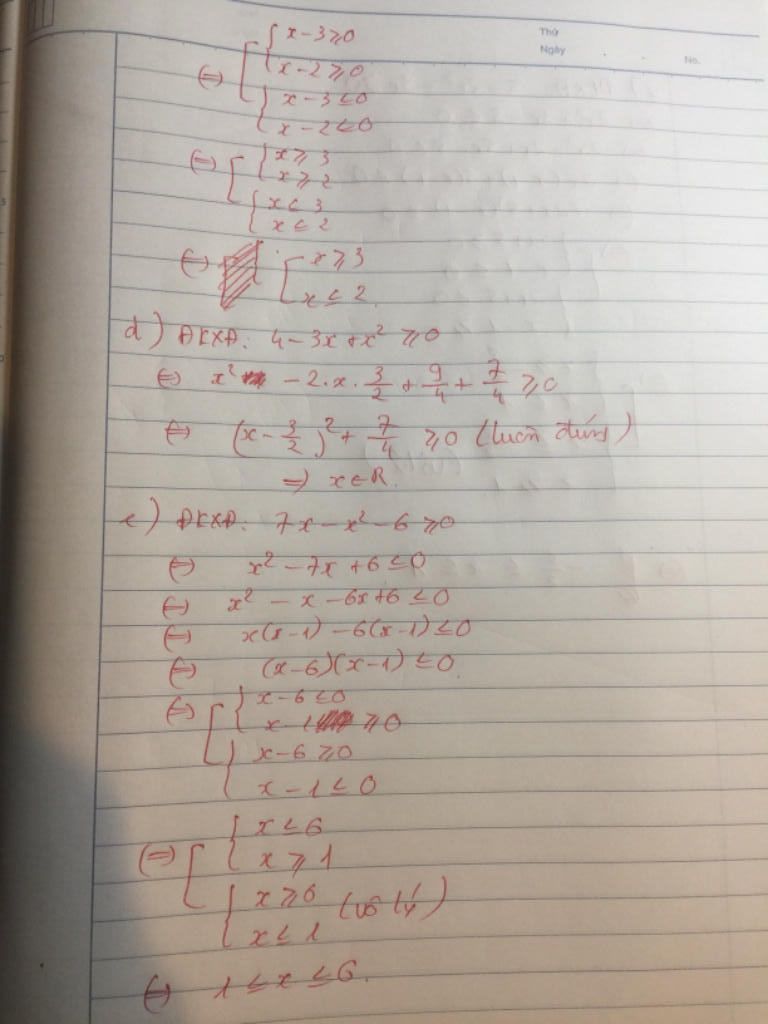 Thứ
Ngày . . No.
x-3≥0
⇔ x-2≥0
x-3≤0
x-2≤0
⇔ x≥3
x≥2
x≤3
x≤2
⇔ x≥3
x≤2
d) ĐKXĐ: 4-3x+x² ≥0
⇔ x² - 2.x.3/2 + 9/4 + 7/4 ≥0
⇔ (x-3/2)² + 7/4 ≥0 (luôn đúng)
⇒ x∈R.
e) ĐKXĐ: 7x-x²-6≥0
⇔ x²-7x+6≤0
⇔ x²-x-6x+6≤0
⇔ x(x-1)-6(x-1)≤0
⇔ (x-6)(x-1)≤0
⇔ x-6≤0
x-1≥0
x-6≥0
x-1≤0
⇔ x≤6
x≥1
x≥6 (vô lý)
x≤1
⇔ 1≤x≤6.